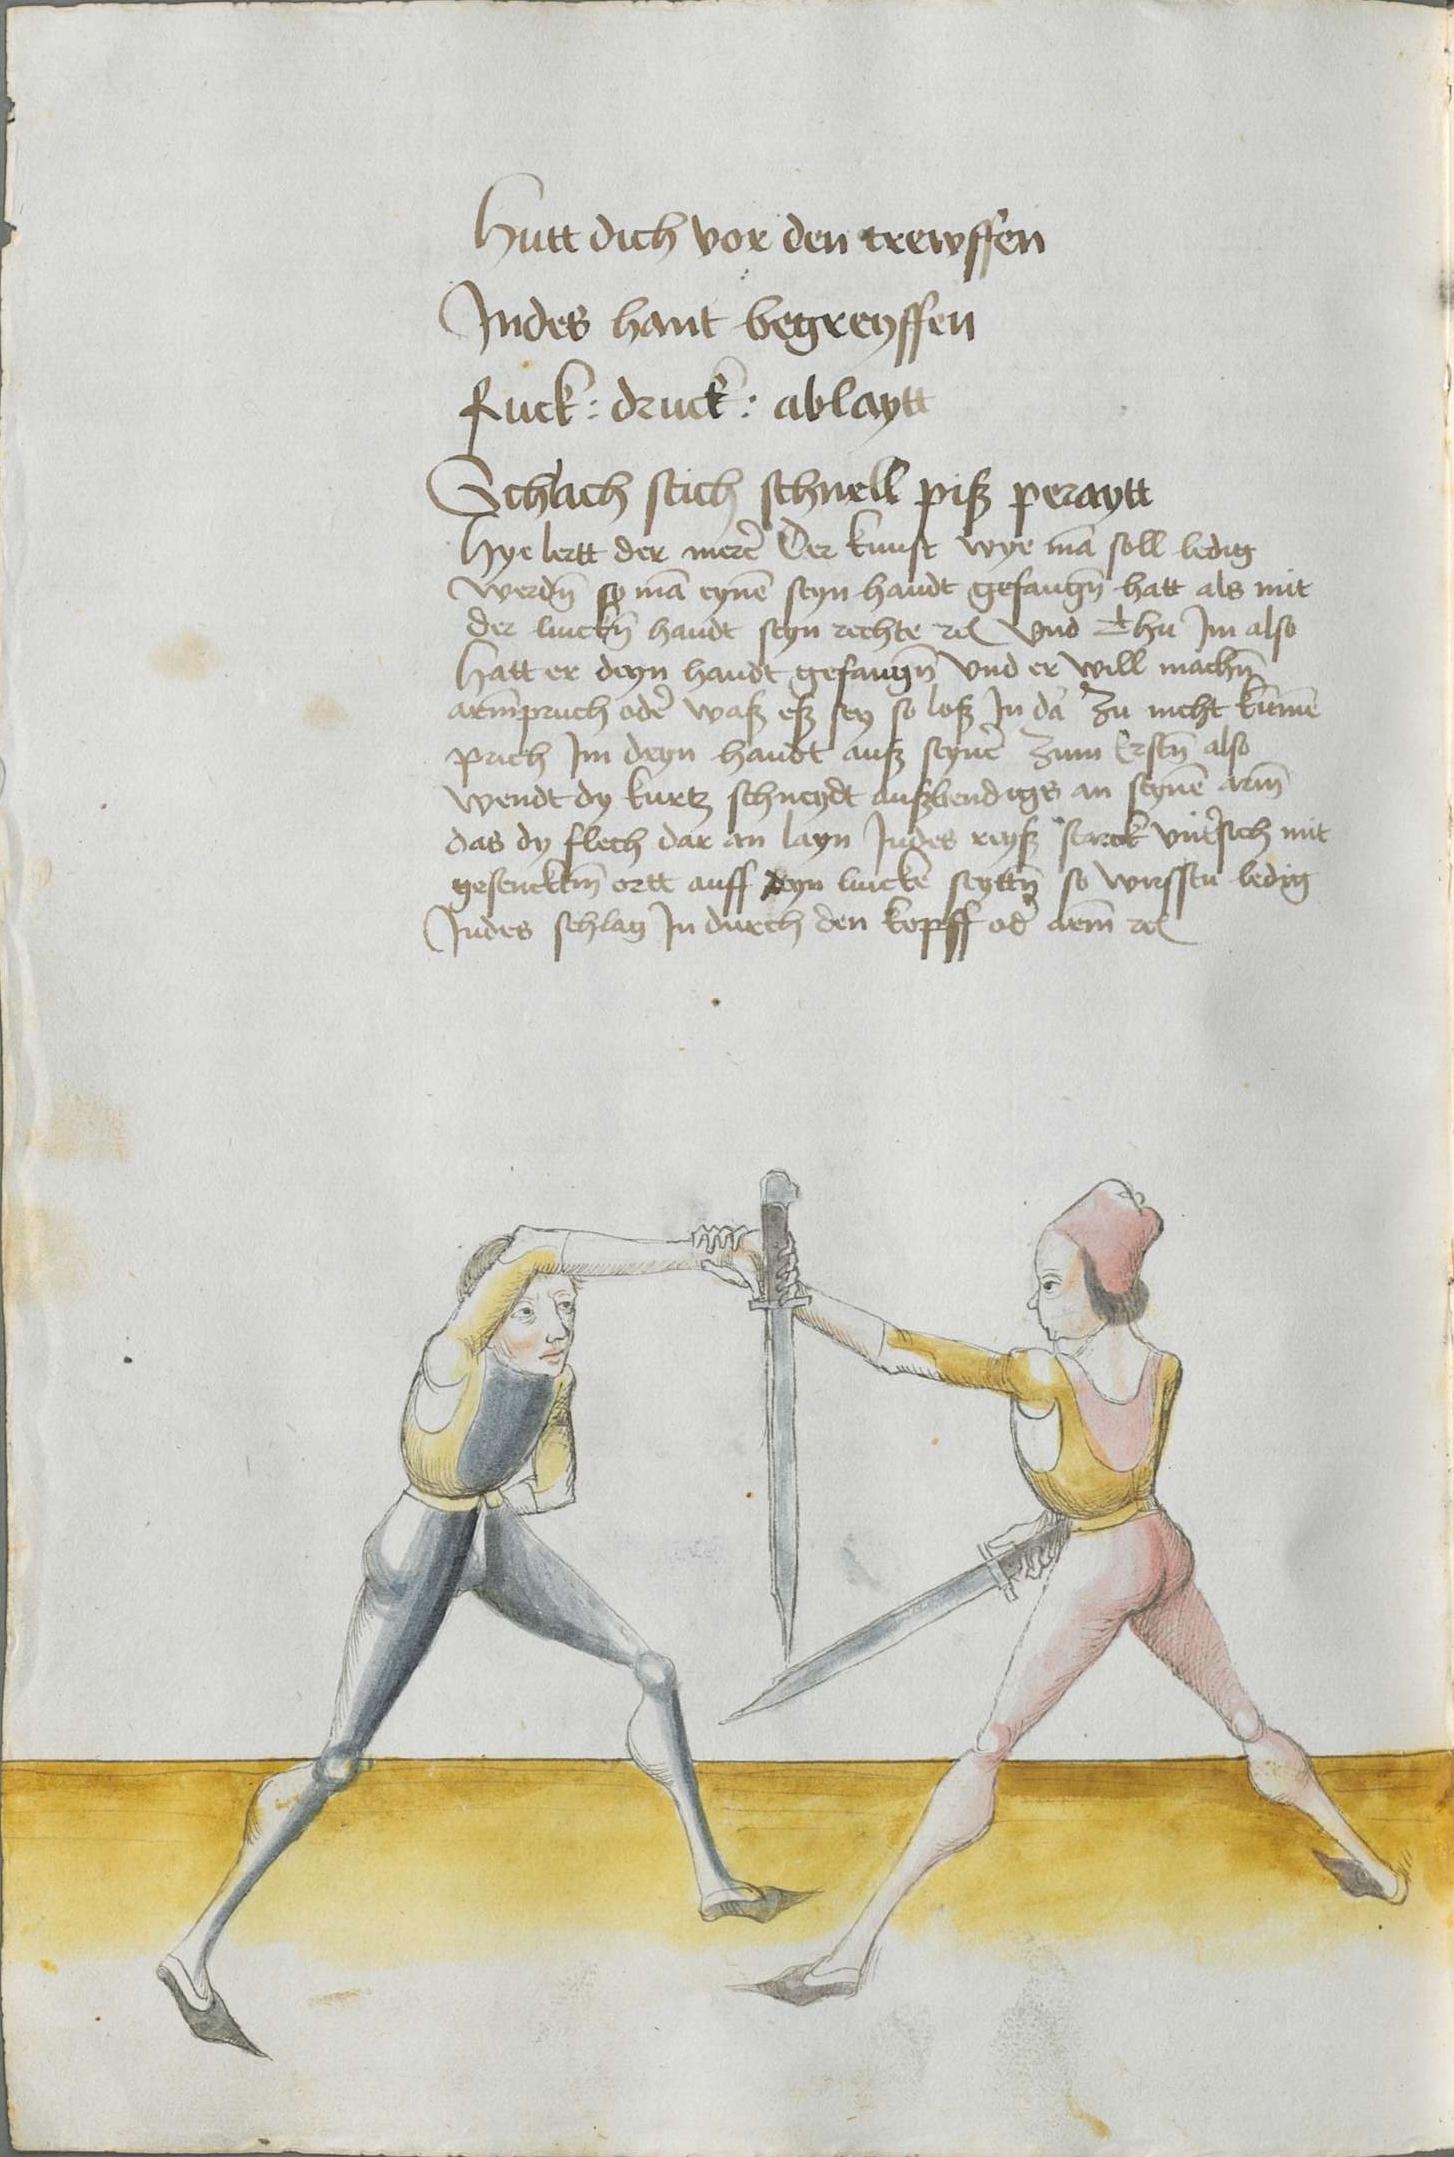 Hutt dich vor den trewffen
Indes hant begreyffen
Ruck : druck : ablaytt
Schlach stich schnell piß peraytt
Hye lertt der merc̄ Der kunst wye mā soll ledig
werdn̄ so mā eynē seyn handt gefangn̄ hatt als mit
der linckn̄ handt seyn rechte rc Vnd thu Im also
Hatt er deyn handt gefangn̄ Vnd er will machn̄
arm̄pruch oder̄ waß eß sey so loß In da Zu nicht kūmē
prich Im deyn handt auß seyner̄ Zum Erstn̄ also
Wendt dy kurtz schneydt außbendigs an seynē arm̄
das dy flech dar an layn Indes reyß starck vnter̄sich mit
gesencktm̄ ortt auff deyn lincke seyttn̄ so wirsstu ledig
Indes schlag In durch den kopff od̄ arm̄ rc